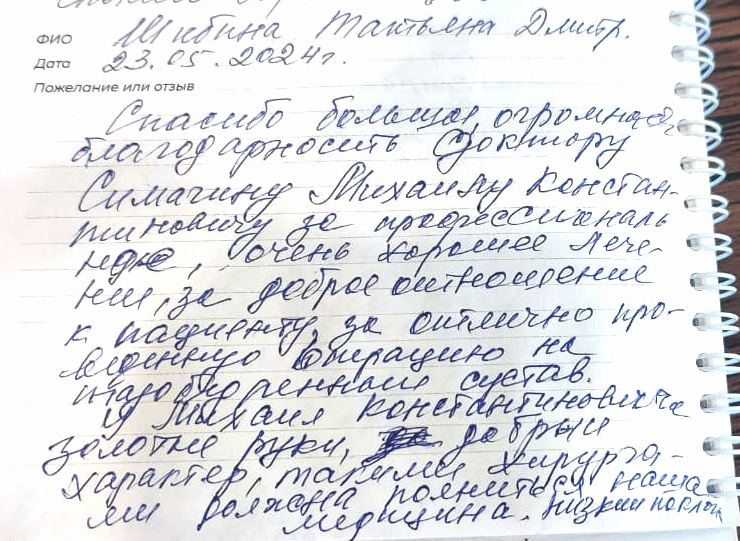 ФИО Шибина Татьяна Дмитр.
Дата 23.05.2024г.
Пожелание или отзыв
Спасибо большое, огромная
благодарность доктору
Симачину Михаилу Констан-
тиновичу за профессиональ
ное, очень хорошее лече-
ни, за доброе отношение
к пациенту, за отлично про-
веденную операцию на
тазобедренный сустав.
У Михаил Константиновича
золотые руки, добрый
характер, такими хирурга-
ми должна полниться наша
медицина. Низкий поклон